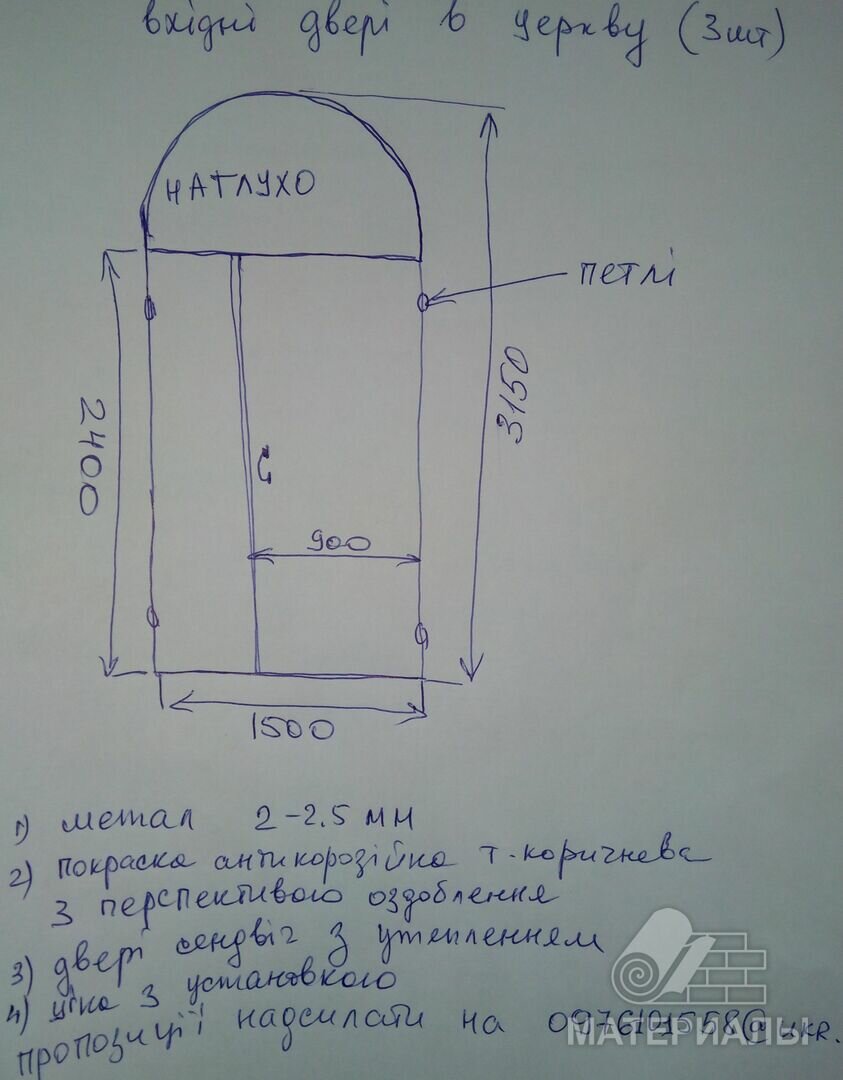 вхідні двері в церкву (3шт)
НАГЛУХО
ПЕТЛІ
3150
2400
900
1500
1) метал 2-2.5 мм
2) покраска антикорозійна т.коричнева
з перспективою оздоблення
3) двері сендвіч з утепленням
4) ціна з установкою
пропозиції надсилати на @ukr.
МАТЕРИАЛЫ